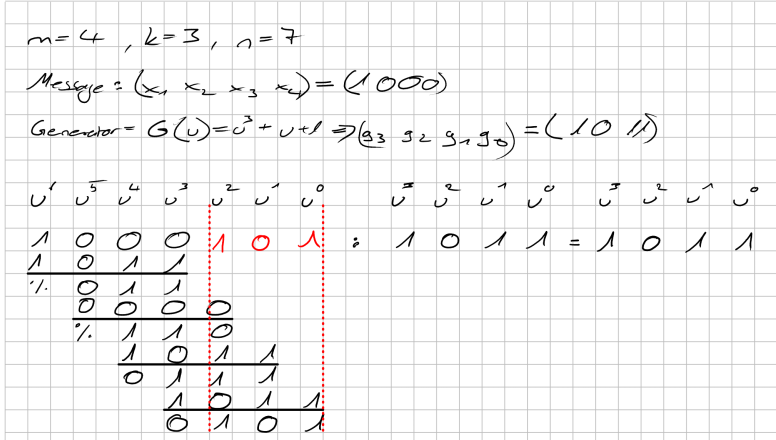 m=4 , k=3, n=7
Message = (x₁ x₂ x₃ x₄) = (1000)
Generator = G(u)=u³+u+1 ⇒ (g₃ g₂ g₁ g₀) = (1011)
u⁶ u⁵ u⁴ u³ u² u¹ u⁰ u³ u² u¹ u⁰ u³ u² u¹ u⁰
1 0 0 0 1 0 1 : 1 0 1 1 = 1 0 1 1
1 0 1 1
% 0 1 1
0 0 0 0
% 1 1 0
1 0 1 1
0 1 1 1
1 0 1 1
0 1 0 1